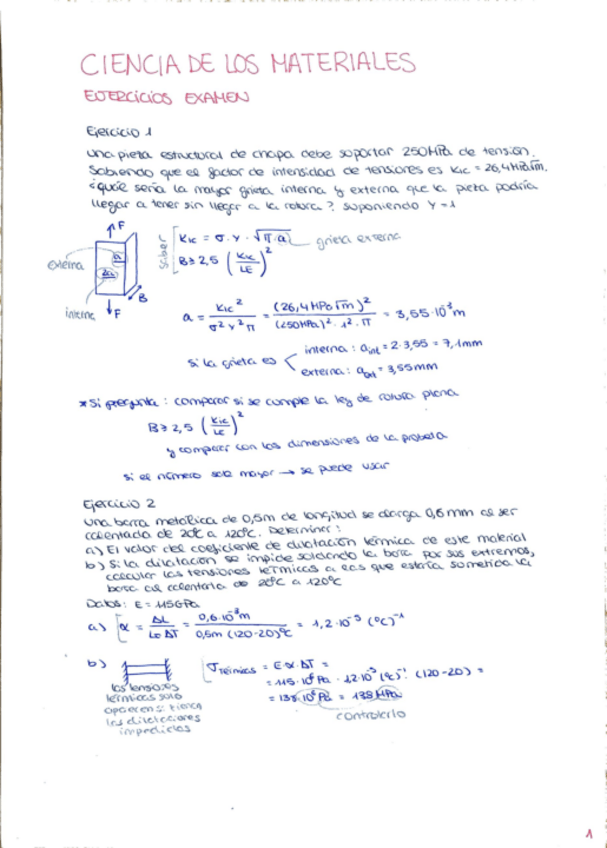 CIENCIA DE LOS MATERIALES
EJERCICIOS EXAMEN
Ejercicio 1
Una pieza estructural de chapa debe soportar 250MPa de tensión.
Sabiendo que el factor de intensidad de tensiones es KIC = 26,4MPa√m.
¿Cuál sería la mayor grieta interna y externa que la pieza podría
llegar a tener sin llegar a la rotura? suponiendo Y = 1
F
externa
a
2a
interna
F
B
Saber
KIC = σ · Y · √π · a
grieta externa
B ≥ 2,5 (KIC/LE)²
a = KIC²/σ² Y² π = (26,4 MPa √m)²/(250MPa)² · 1² · π = 3,55·10⁻³ m
si la grieta es
interna : aint = 2·3,55 = 7,1mm
externa : aext = 3,55mm
* Si pregunta : comparar si se cumple la ley de rotura plana
B ≥ 2,5 (KIC/LE)²
y comparar con las dimensiones de la probeta
si el número sale mayor → se puede usar
Ejercicio 2
Una barra metálica de 0,5m de longitud se alarga 0,6mm al ser
calentada de 20ºC a 120ºC. Determinar :
a) El valor del coeficiente de dilatación térmica de este material
b) Si la dilatación se impide soldando la barra por sus extremos,
calcular las tensiones térmicas a las que estaría sometida la
barra al calentarla de 20ºC a 120ºC
Datos : E = 115GPa
a) α = ΔL/L0 ΔT = 0,6·10⁻³ m/0,5m (120-20)ºC = 1,2·10⁻⁵ (ºC)⁻¹
b)
σTérmicas = E·α·ΔT =
= 115·10⁹ Pa · 1,2·10⁻⁵ (ºC)⁻¹ (120-20) =
= 138·10⁶ Pa = 138 MPa
controlarlo
las tensiones
térmicas solo
aparecen si tienen
las dilataciones
impedidas
1